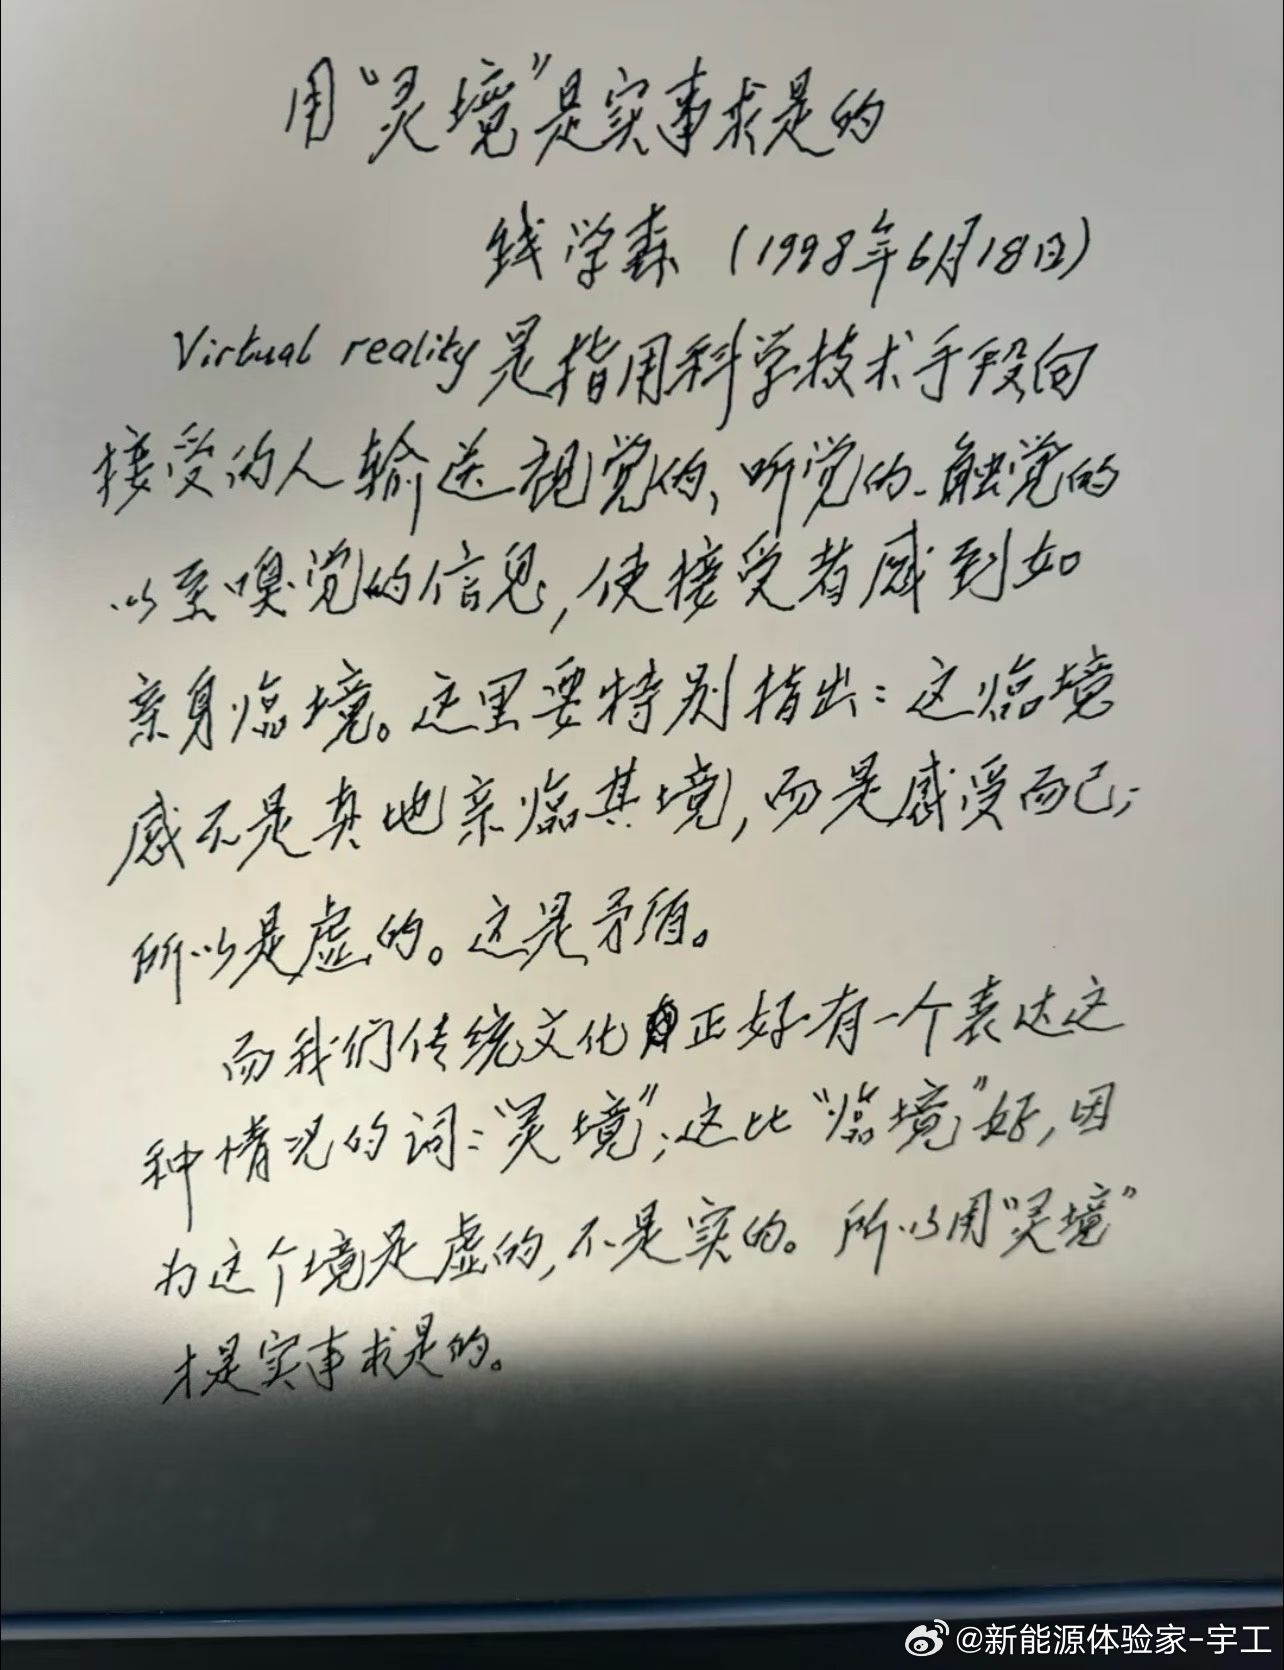 用“灵境”是实事求是的
钱学森（1998年6月18日）
Virtual reality是指用科学技术手段向
接受的人输送视觉的，听觉的、触觉的
以至嗅觉的信息，使接受者感到如
亲身临境。这里要特别指出：这临境
感不是真地亲临其境，而是感受而已；
所以是虚的。这是矛盾。
而我们传统文化正好有一个表达这
种情况的词：“灵境”；这比“临境”好，因
为这个境是虚的，不是实的。所以用“灵境”
才是实事求是的。
@新能源体验家-宇工